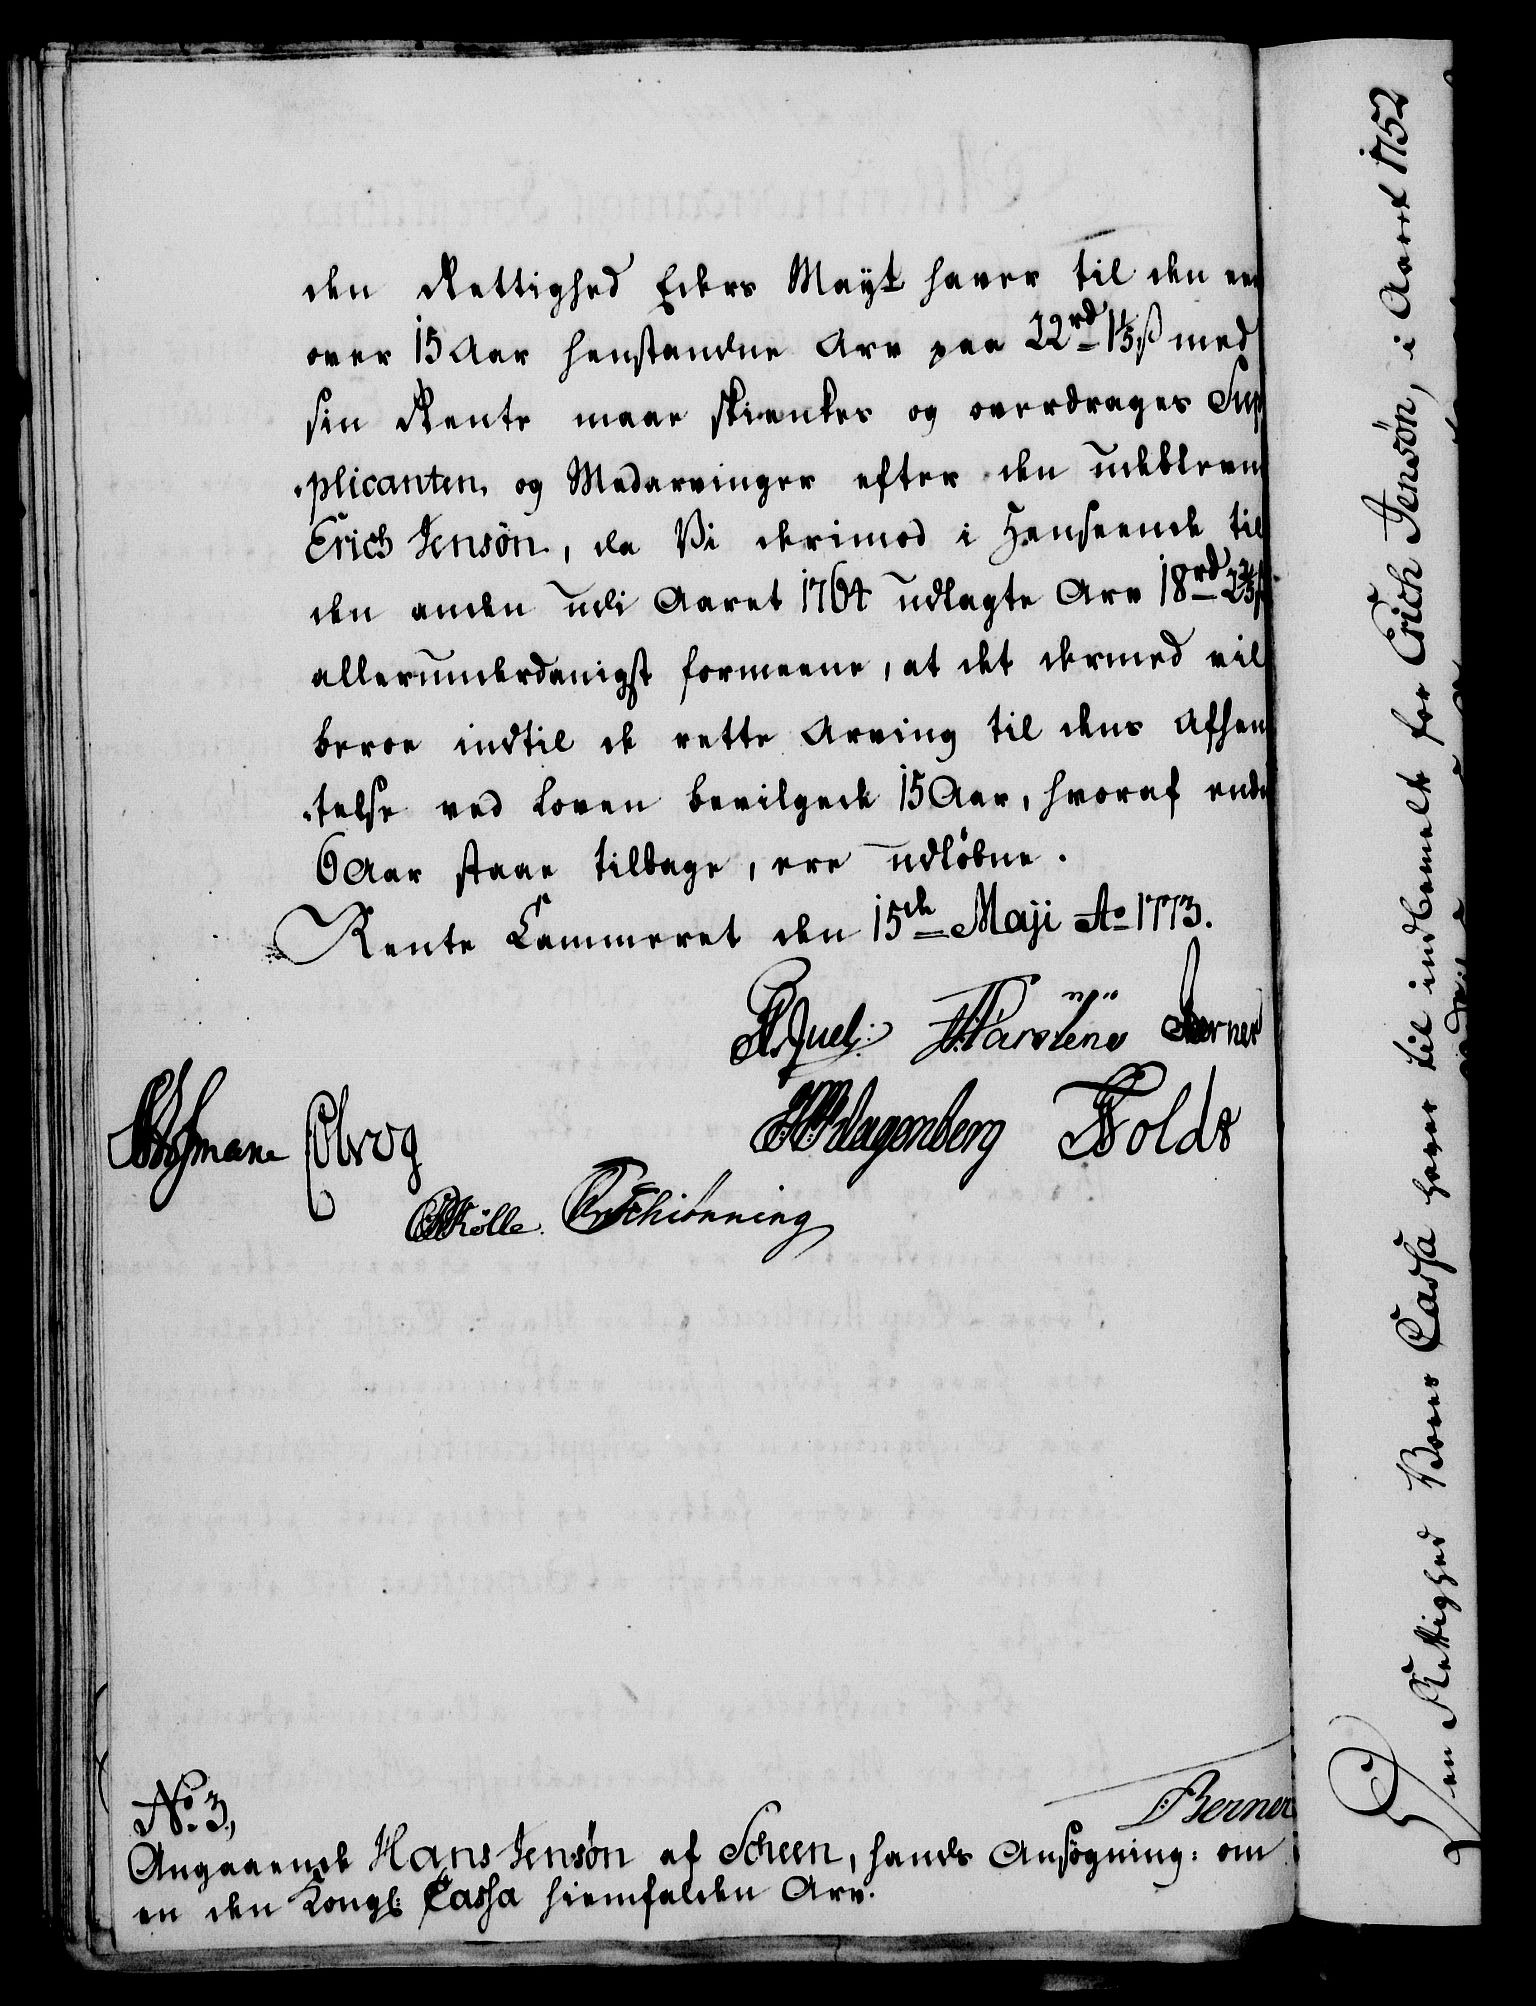 den Rettighed Eders Mayt haver til den
over 15 Aar henstandne Arv paa 22rd 1⅓ß med
sin Rente maae skienkes og overdrages Sup
plicanten og Medarvinger efter den udeblevne
Erich Jensøn, da Vi derimod i Henseende til
den anden udi Aaret 1764 udlagte Arv 18rd
allerunderdanigst formeene, at det dermed vil
beroe indtil de rette Arving til dens Afhen
telse ved Loven bevilgede 15 Aar, hvoraf endnu
6 Aar staae tilbage, ere udløbne.
Rente Cammeret den 15de Maji Ao 1773.
Juel. Karstens Berner
Hofmann Klagenberg Holdt
Mölle. Schiønning
No 3,
Berner
Angaaende Hans Jensøn af Scheen, hands Ansøgning: om
en den Kongl: Cassa hiemfalden Arv.
Den Rettighed Vores Cassa haver til indbemelte for Erich Jensøn, i Aaret 1752